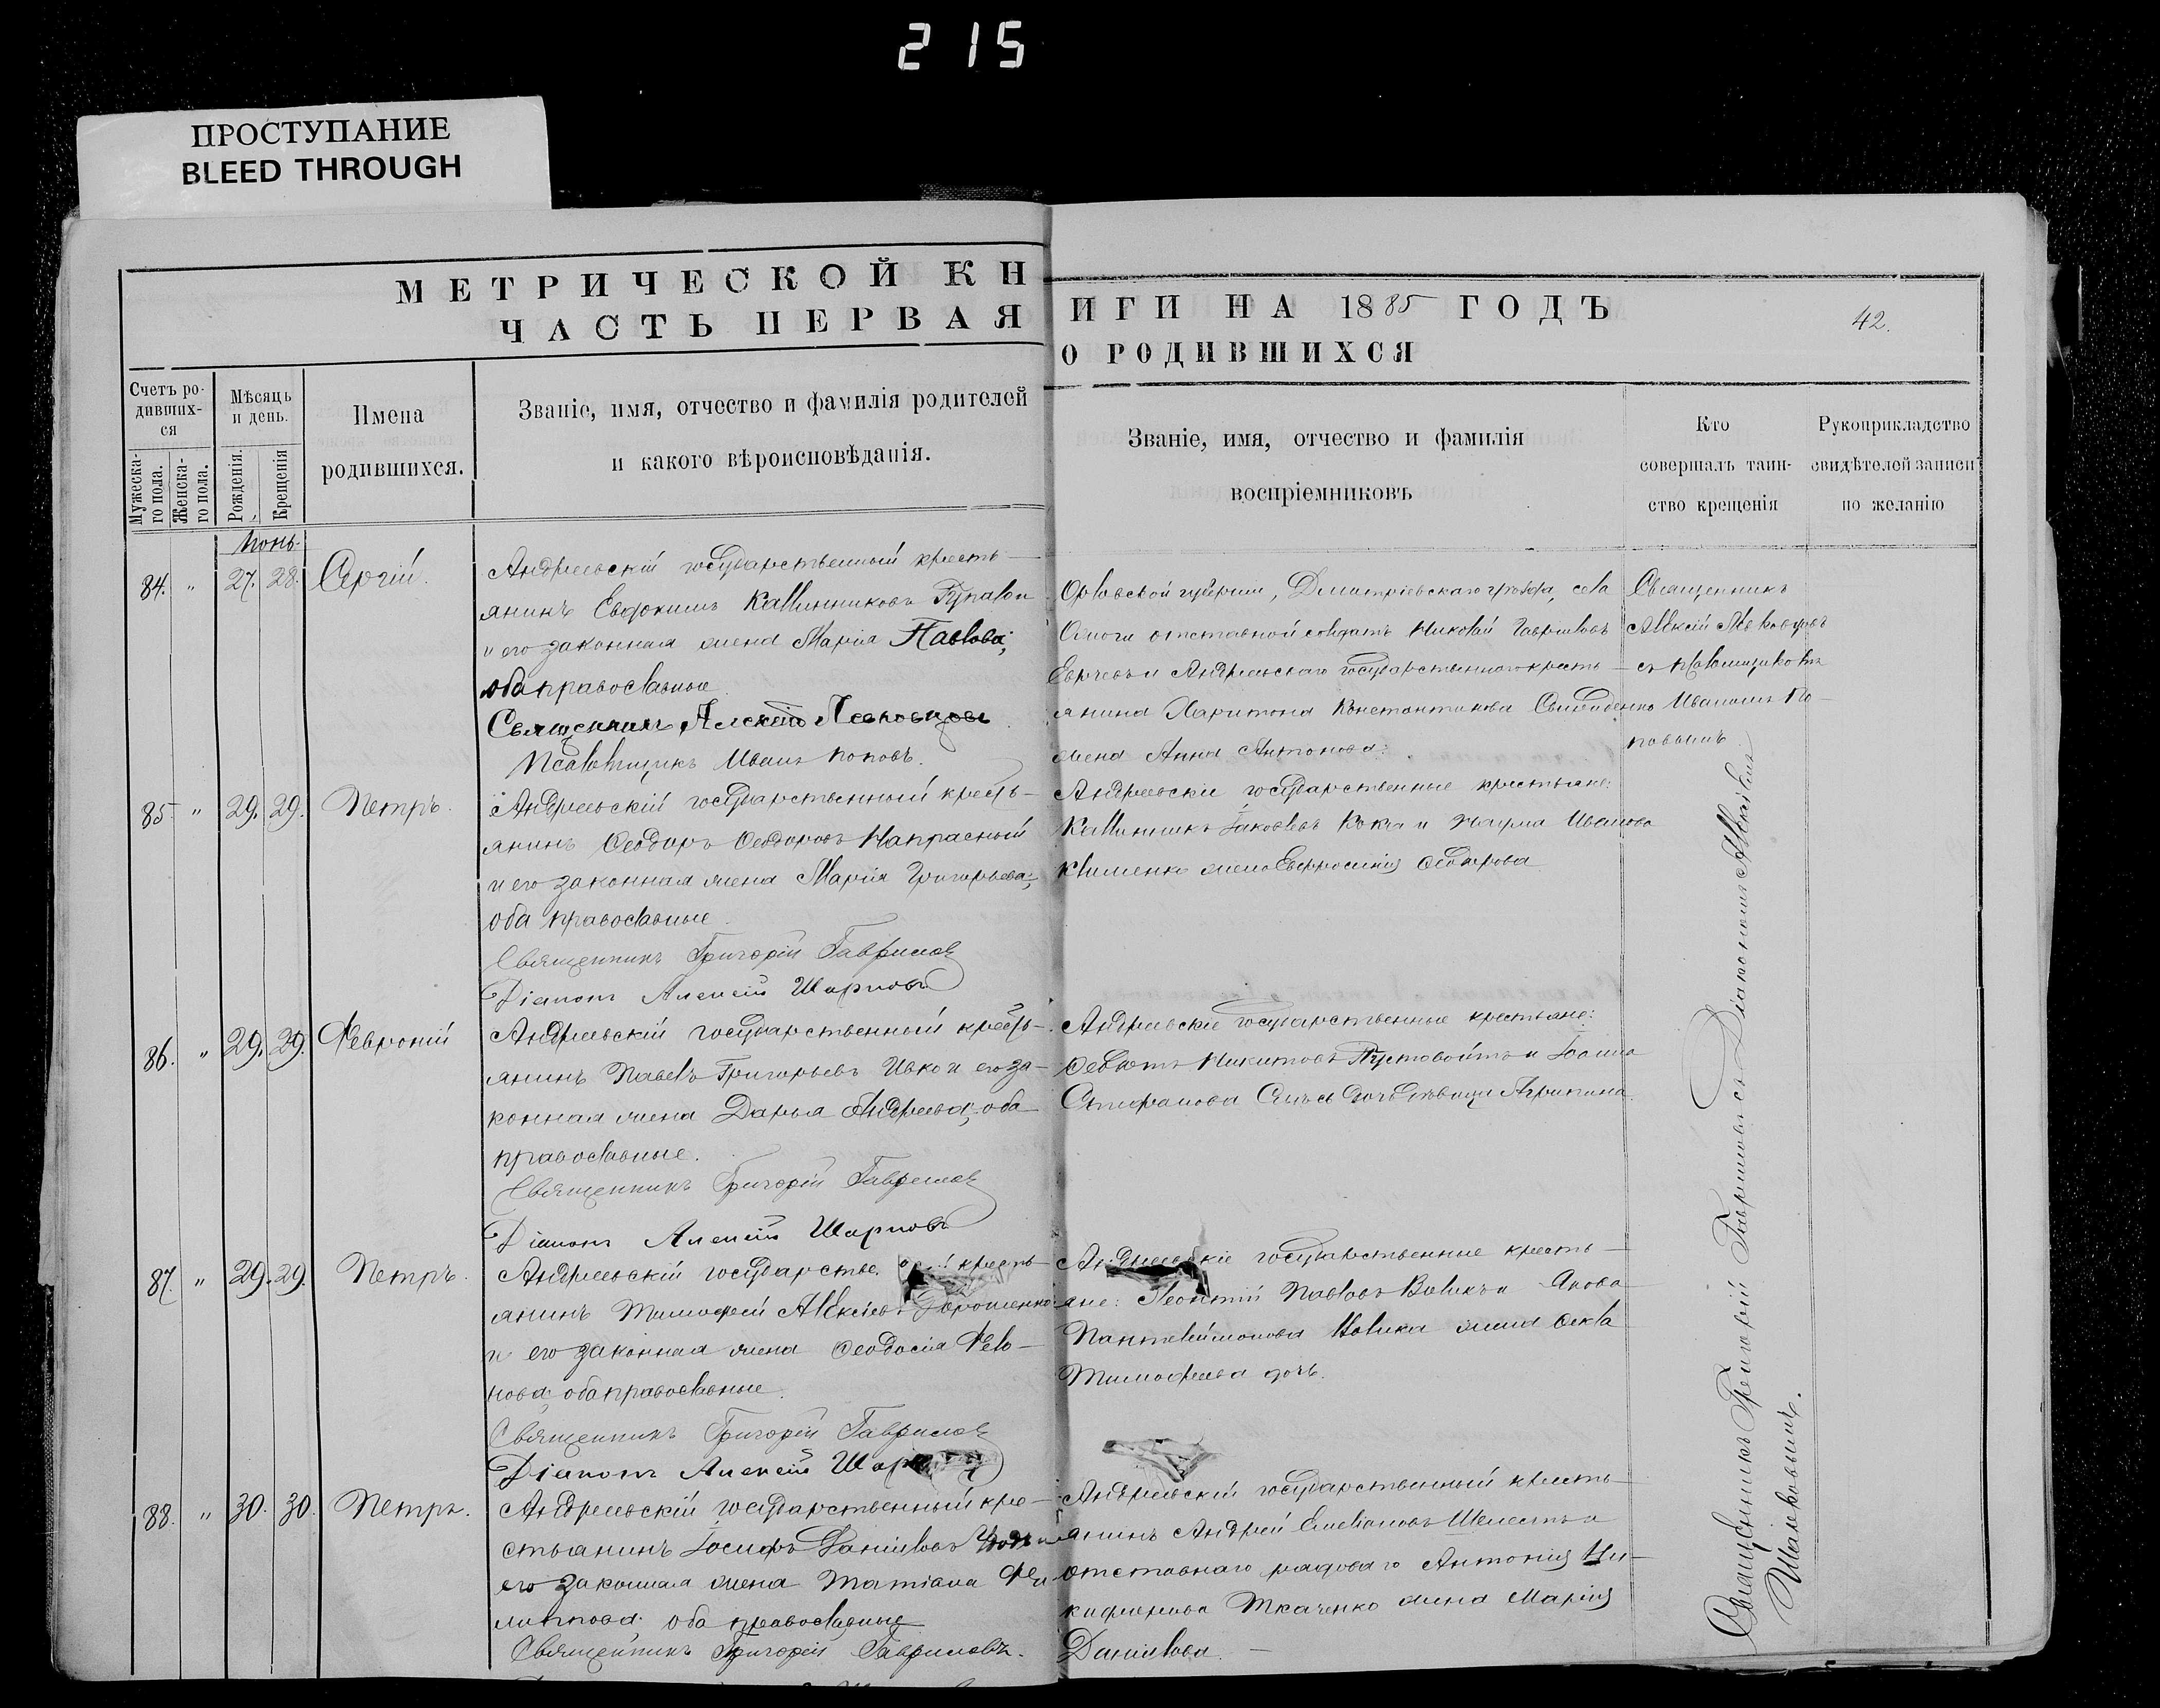 215
ПРОСТУПАНИЕ
BLEED THROUGH
МЕТРИЧЕСКОЙ КНИГИ НА 1885 ГОДЪ
42.
ЧАСТЬ ПЕРВАЯ О РОДИВШИХСЯ
Счетъ родившихся
Мужескаго пола.
Женскаго пола.
Мѣсяцъ и день.
Рожденія.
Крещенія
Имена
родившихся.
Званіе, имя, отчество и фамилія родителей
и какого вѣроисповѣданія.
Званіе, имя, отчество и фамилія
воспріемниковъ
Кто
совершалъ таин-
ство крещенія
Рукоприкладство
свидѣтелей записи
по желанію
Іюнь.
84. " 27. 28. Сергій.
Андреевскій государственный кресть-
янинъ Евдокимъ Каллинниковъ
и его законная жена Марія Павлова;
оба православные
Священникъ Алексій
Псаломщикъ Иванъ Поповъ.
губерніи, Димитріевскаго уѣзда, села
отставной солдатъ Николай Гавриловъ
и Андреевскаго государственнаго кресть-
янина Харитона Константинова
жена Анна Антонова.
Священникъ
Алексій
съ псаломщикомъ
Иваномъ По-
повымъ.
85. " 29. 29. Петръ.
Андреевскій государственный кресть-
янинъ Феодоръ Феодоровъ Напрасный
и его законная жена Марія Григорьева;
оба православные.
Священникъ Григорій Гавриловъ
Діаконъ Алексій
Андреевскіе государственные крестьяне:
Каллиникъ Іаковлевъ Кокта и Наума Иванова
Клименко жена Евфросинія Феодорова
86. " 29. 29. Февроній
Андреевскій государственный кресть-
янинъ Павелъ Григорьевъ Ивко и его за-
конная жена Дарья Андреева; оба
православные.
Священникъ Григорій Гавриловъ
Діаконъ Алексій
Андреевскіе государственные крестьяне:
Никитовъ Пустовойтъ и Іоанна
Стефанова дочь дѣвица Агрипина.
87. " 29. 29. Петръ.
Андреевскій кресть-
янинъ Тимофей Алексіевъ Дорошенко
и его законная жена Феодосія Фело-
нова; оба православные.
Священникъ Григорій Гавриловъ
Діаконъ Алексій
Андреевскіе государственные кресть-
яне: Леонтій Павловъ Воликъ и Якова
Пантелеймонова Новика жена Фекла
Тимофеева дочь.
88. " 30. 30. Петръ.
Андреевскій государственный кре-
стьянинъ Іосифъ Даніиловъ
его законная жена Татіана Фи-
липпова; оба православные
Священникъ Григорій Гавриловъ.
Андреевскій государственный кресть-
янинъ Андрей Емеліановъ Шелестъ и
отставнаго рядоваго Антонія Ни-
кифорова Ткаченко жена Марія
Даніилова.
Священникъ Григорій Гавриловъ съ Діакономъ Алексіемъ